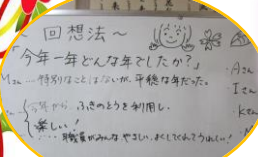 ～回想法～
「今年一年どんな年でしたか?」
Mさん…特別なことはないが、平穏な年だった。
・Aさん
・Iさ
・Kさ
今年から ふきのとうを利用し、
楽しい!
職員がみんなやさしい。よくしてくれてうれしい!